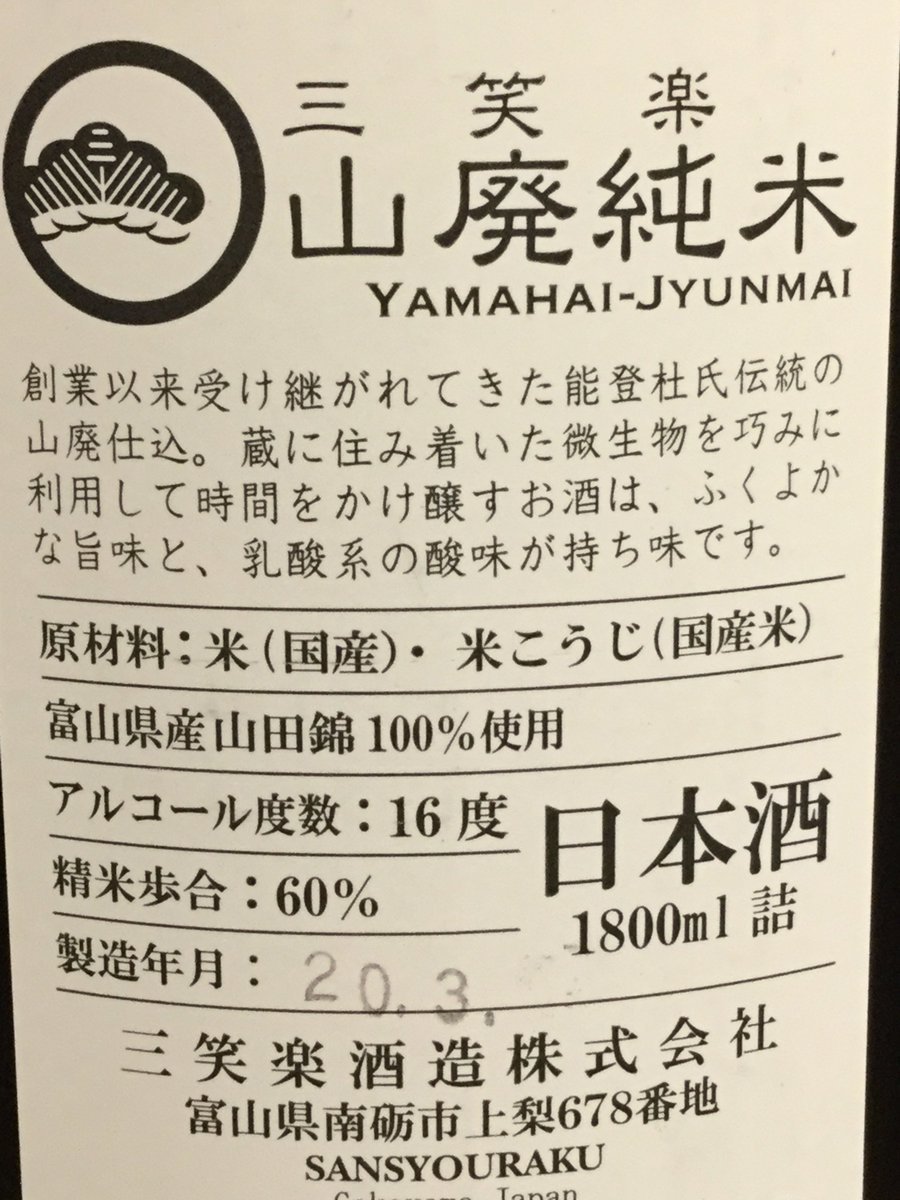 三笑楽
山廃純米
YAMAHAI-JYUNMAI
創業以来受け継がれてきた能登杜氏伝統の
山廃仕込。蔵に住み着いた微生物を巧みに
利用して時間をかけ醸すお酒は、ふくよか
な旨味と、乳酸系の酸味が持ち味です。
原材料：米(国産)・米こうじ(国産米)
富山県産山田錦100%使用
アルコール度数：16度
精米歩合：60%
日本酒
1800ml詰
製造年月：20.3.
三笑楽酒造株式会社
富山県南砺市上梨678番地
SANSYOURAKU
Gokayama Japan